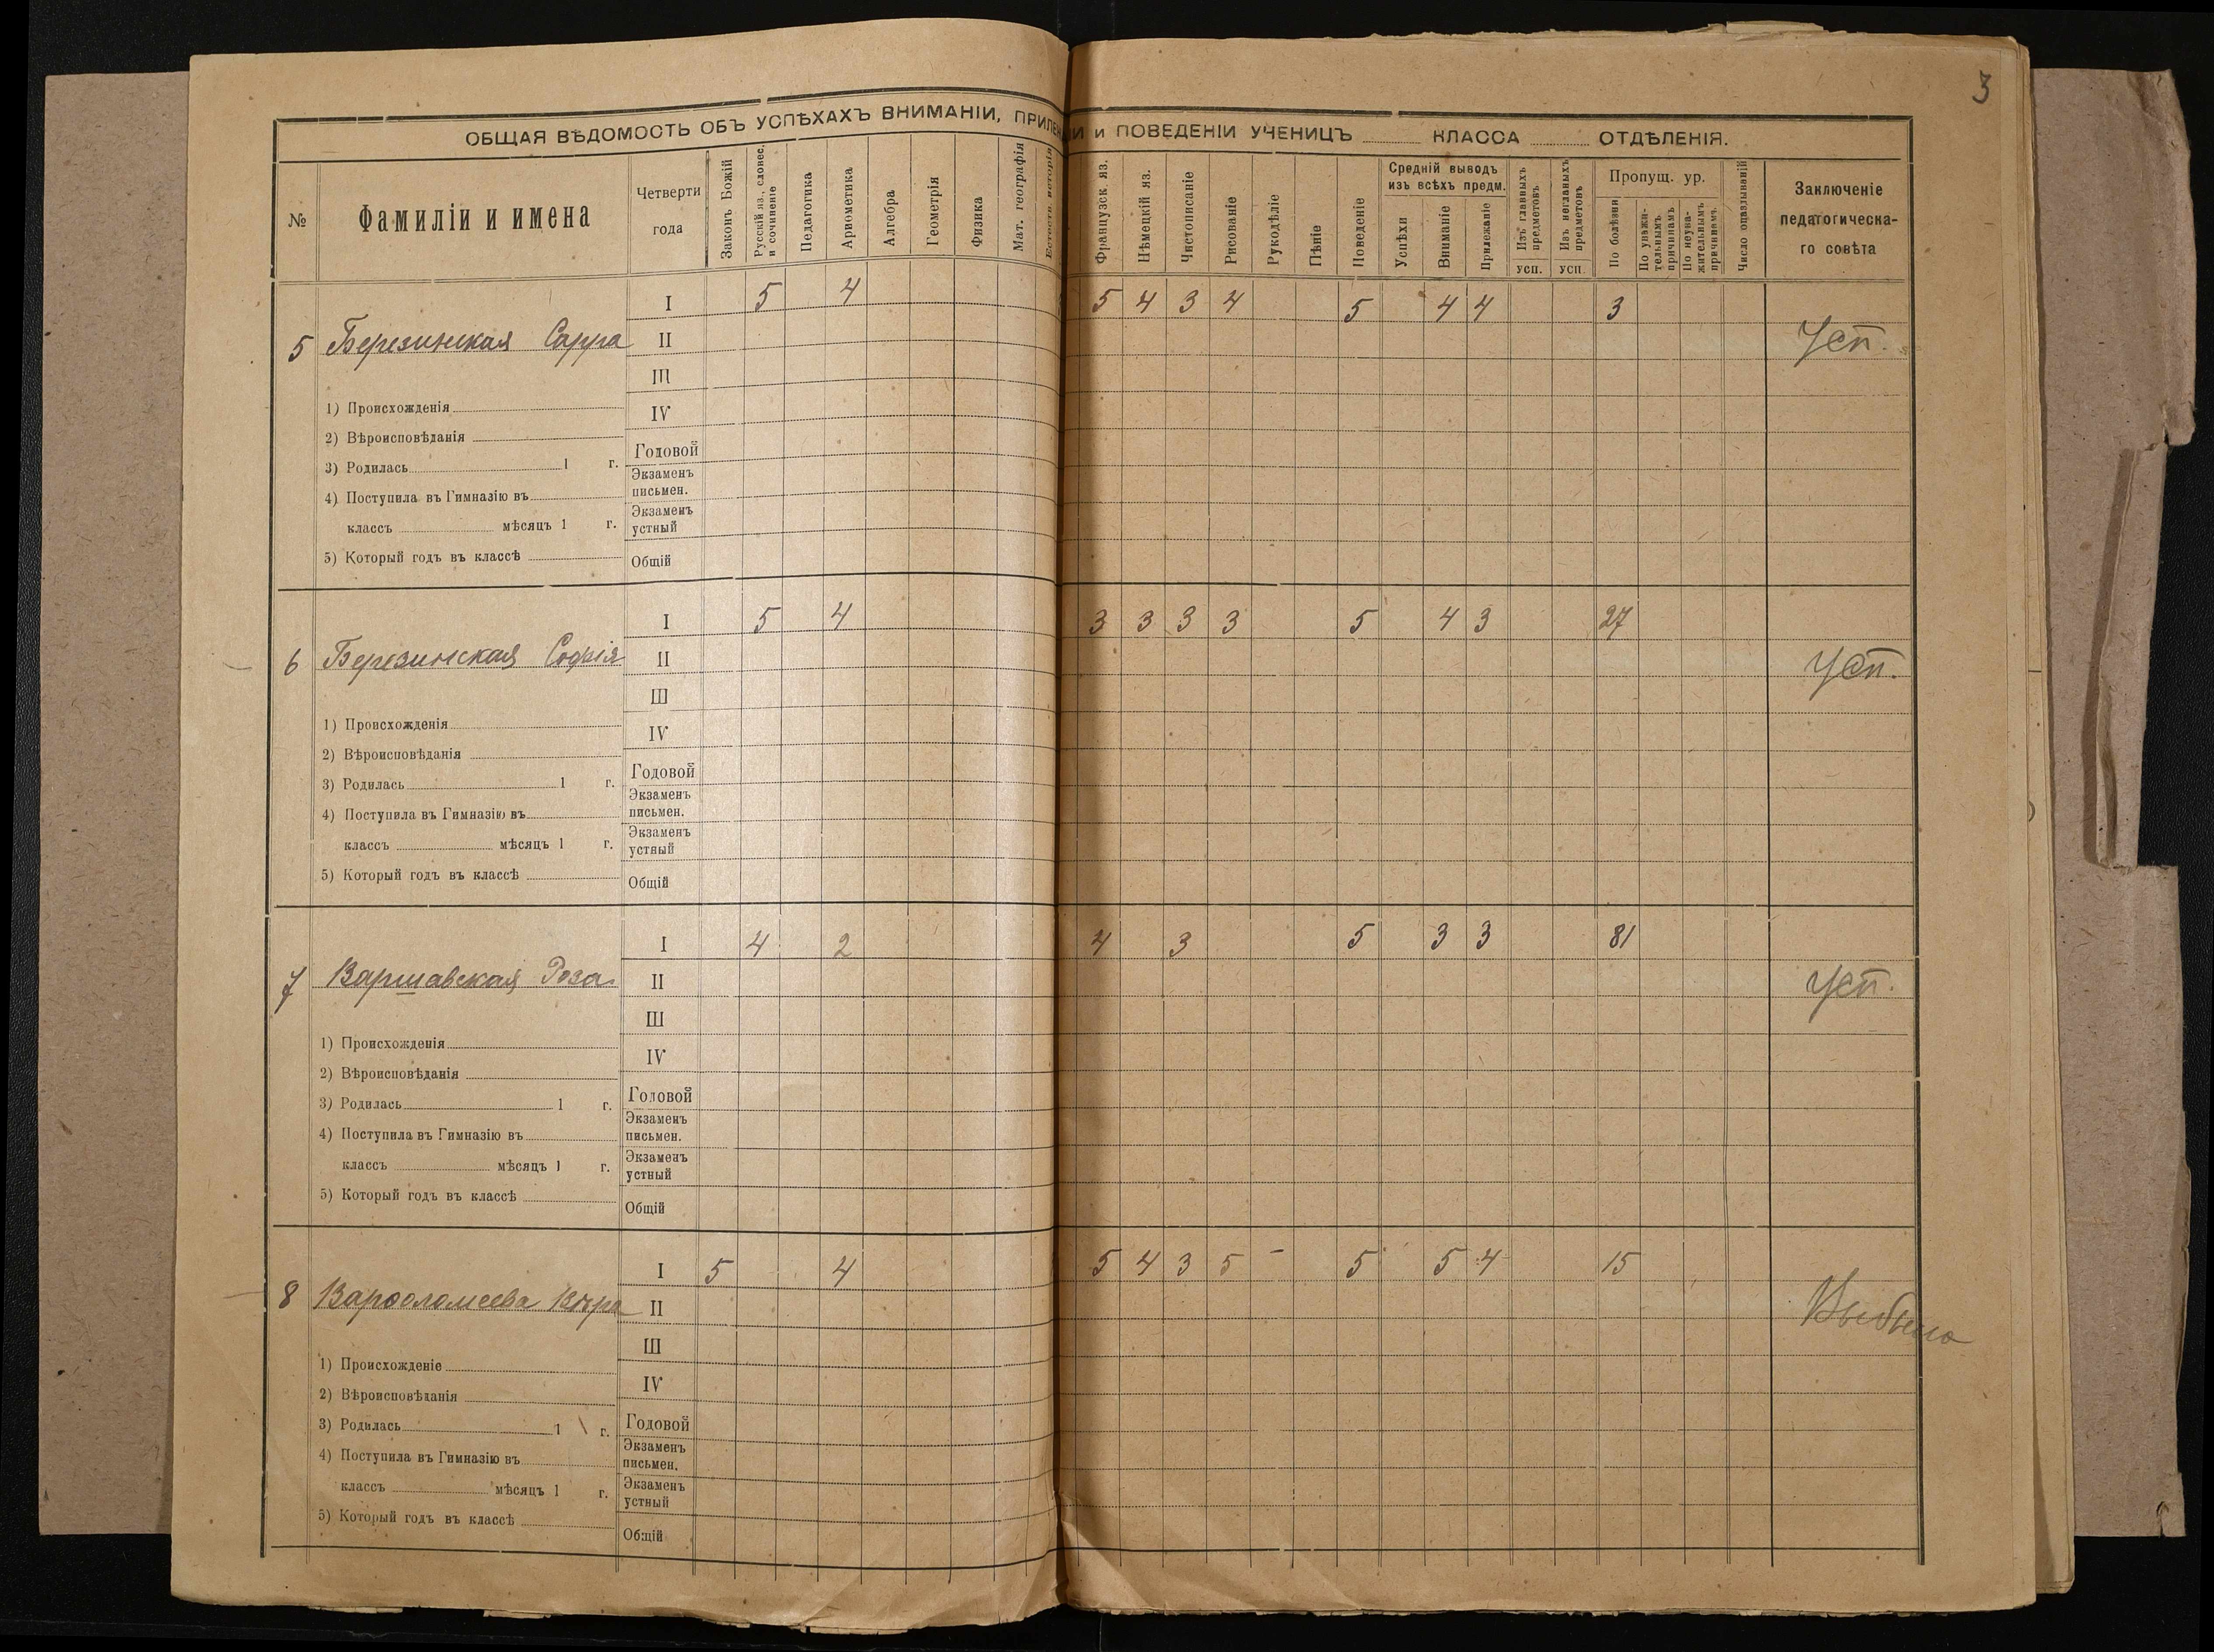 3
ОБЩАЯ ВѢДОМОСТЬ ОБЪ УСПѢХАХЪ ВНИМАНІИ, ПРИЛЕЖ ІИ и ПОВЕДЕНІИ УЧЕНИЦЪ КЛАССА ОТДѢЛЕНІЯ.
№ Фамиліи и имена Четверти года Законъ Божій Русскій яз., словес. и сочиненіе Педагогика Ариѳметика Алгебра Геометрія Физика Мат. географія Естеств. исторія Французск. яз. Нѣмецкій яз. Чистописаніе Рисованіе Рукодѣліе Пѣніе Поведеніе Средній выводъ изъ всѣхъ предм. Успѣхи Вниманіе Прилежаніе Изъ главныхъ предметовъ усп. Изъ неглавныхъ предметовъ усп. Пропущ. ур. По болѣзни По уважи-тельнымъ причинамъ По неува-жительнымъ причинамъ Число опаздываній Заключеніе педагогическа-го совѣта
I 5 4 5 4 3 4 5 4 4 3
5 Березинская Сарра II Усп.
III
1) Происхожденія IV
2) Вѣроисповѣданія Годовой
3) Родилась 1 г. Экзаменъ письмен.
4) Поступила въ Гимназію въ Экзаменъ устный
классъ мѣсяцъ 1 г.
5) Который годъ въ классѣ Общій
I 5 4 3 3 3 3 5 4 3 27
6 Березинская Софія II Усп.
III
1) Происхожденія IV
2) Вѣроисповѣданія Годовой
3) Родилась 1 г. Экзаменъ письмен.
4) Поступила въ Гимназію въ Экзаменъ устный
классъ мѣсяцъ 1 г.
5) Который годъ въ классѣ Общій
I 4 2 4 3 5 3 3 81
7 Варшавская Роза II Усп.
III
1) Происхожденія IV
2) Вѣроисповѣданія Годовой
3) Родилась 1 г. Экзаменъ письмен.
4) Поступила въ Гимназію въ Экзаменъ устный
классъ мѣсяцъ 1 г.
5) Который годъ въ классѣ Общій
I 5 4 5 4 3 5 - 5 5 4 15
8 Варѳоломеева Вѣра II Выбыла
III
1) Происхожденіе IV
2) Вѣроисповѣданія Годовой
3) Родилась 1 г. Экзаменъ письмен.
4) Поступила въ Гимназію въ Экзаменъ устный
классъ мѣсяцъ 1 г.
5) Который годъ въ классѣ Общій